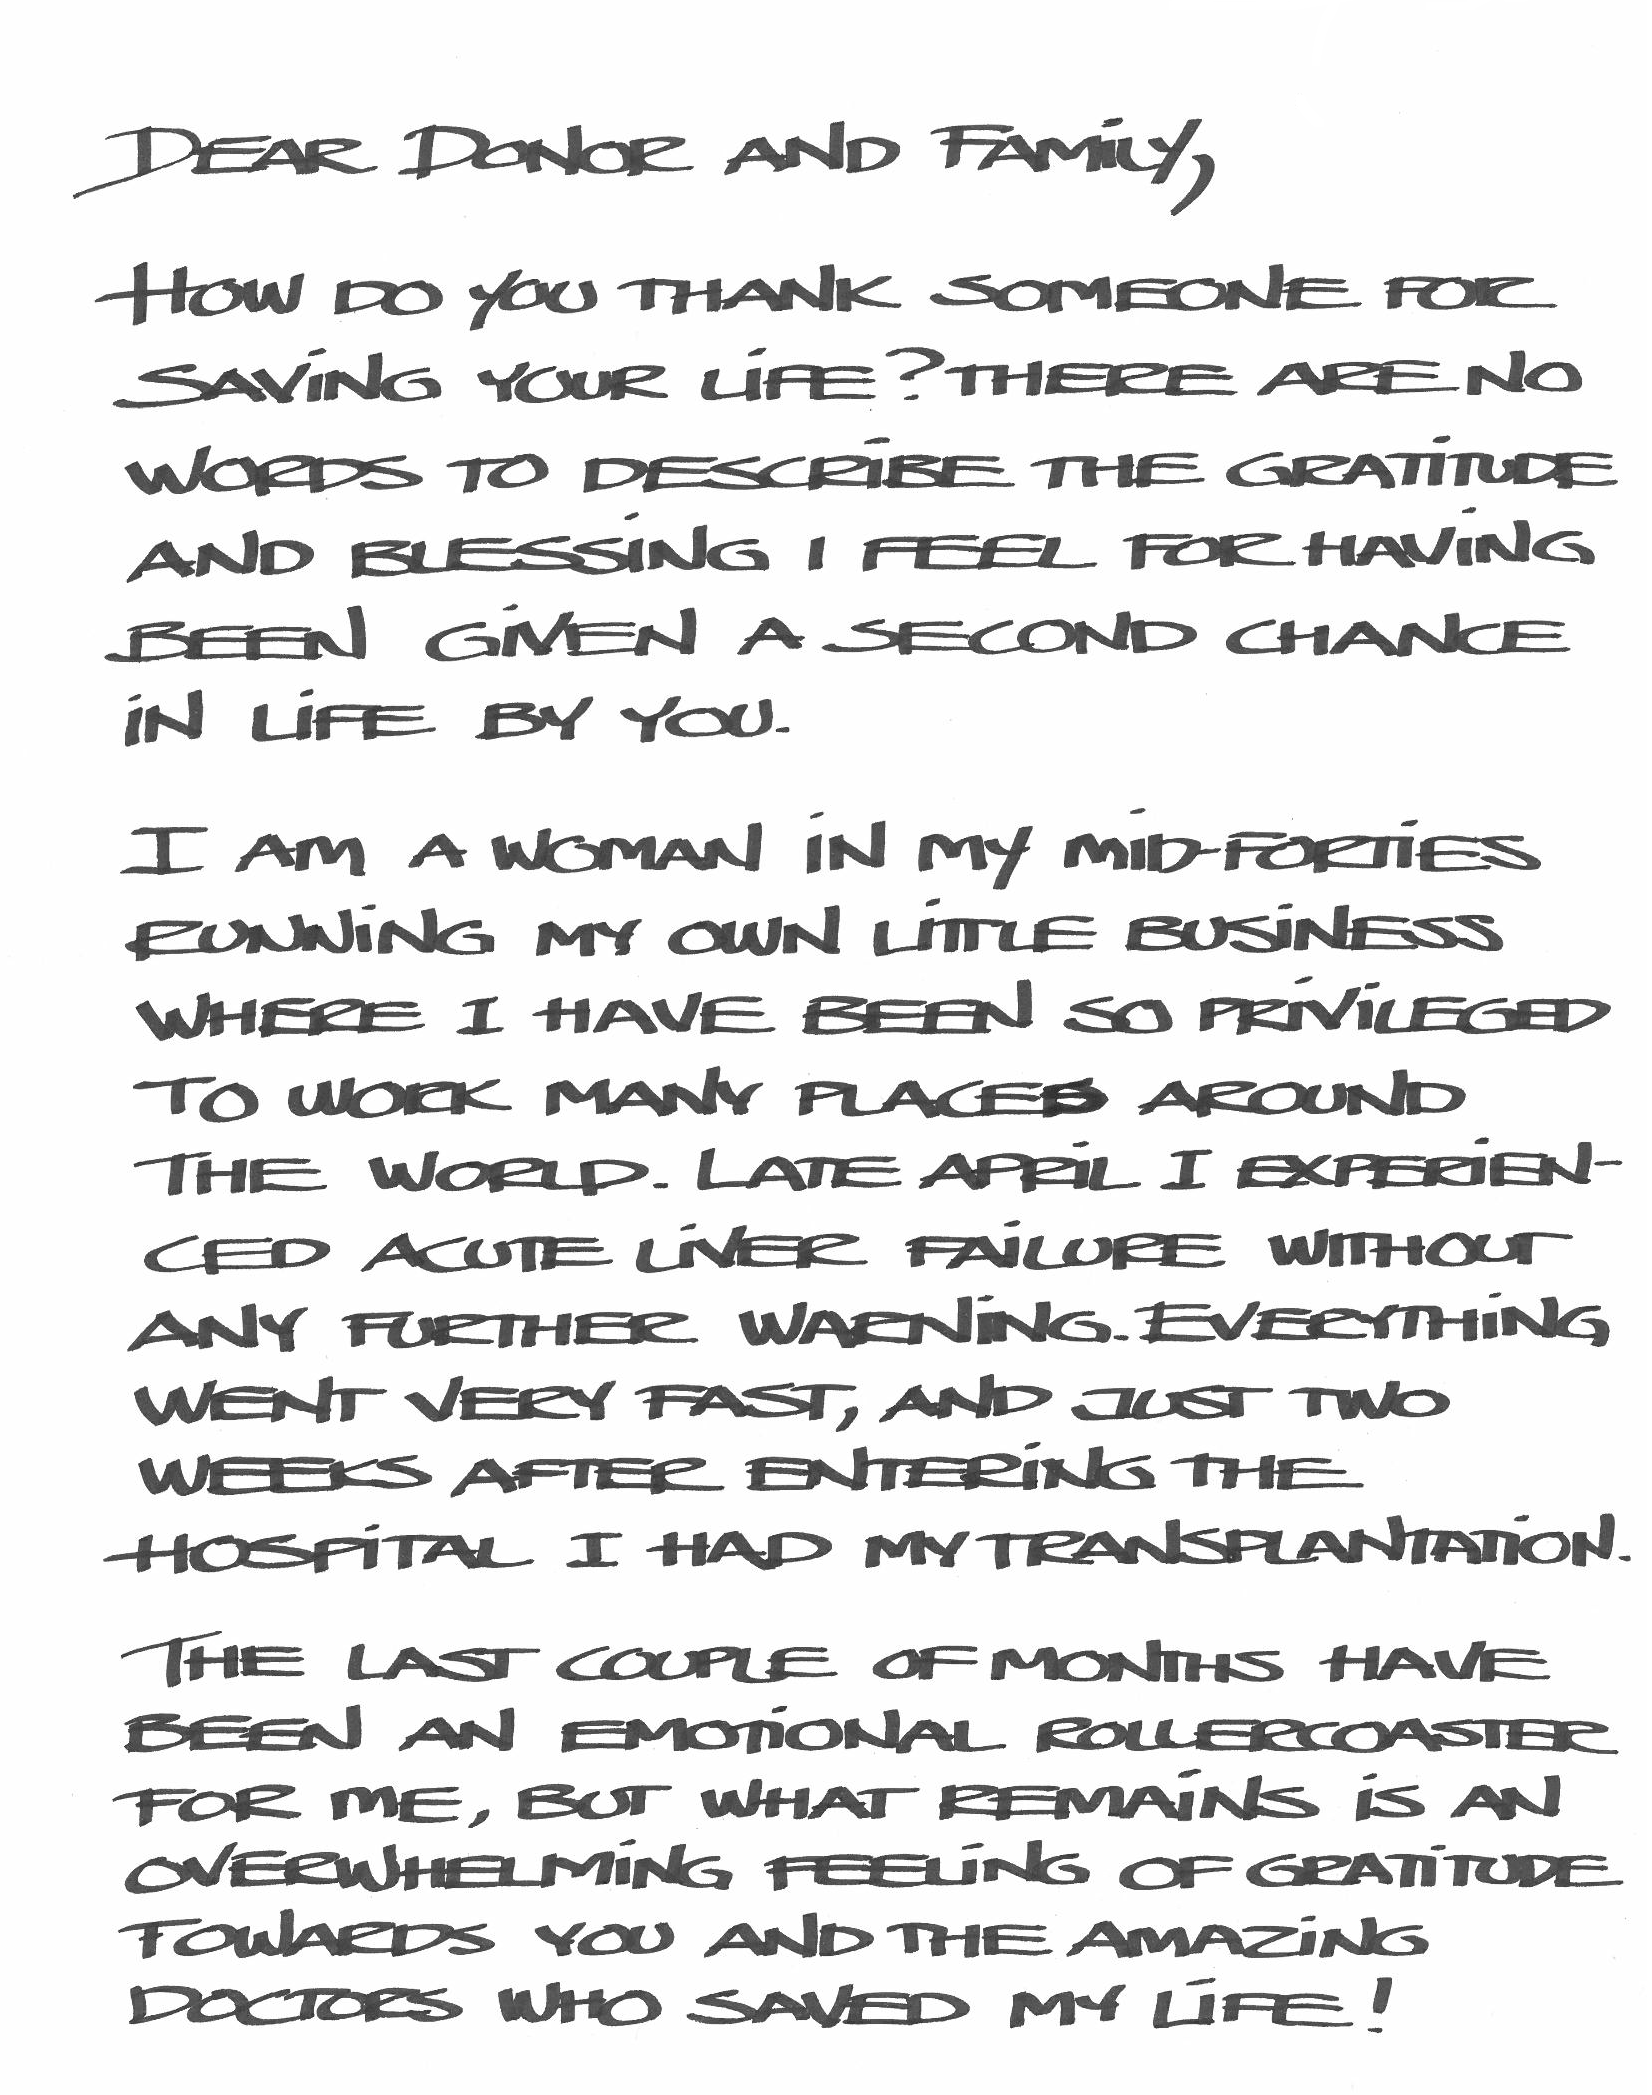 DEAR DONOR AND FAMILY,
HOW DO YOU THANK SOMEONE FOR
SAVING YOUR LIFE? THERE ARE NO
WORDS TO DESCRIBE THE GRATITUDE
AND BLESSING I FEEL FOR HAVING
BEEN GIVEN A SECOND CHANCE
IN LIFE BY YOU.
I AM A WOMAN IN MY MID-FORTIES
RUNNING MY OWN LITTLE BUSINESS
WHERE I HAVE BEEN SO PRIVILEGED
TO WORK MANY PLACES AROUND
THE WORLD. LATE APRIL I EXPERIEN-
CED ACUTE LIVER FAILURE WITHOUT
ANY FURTHER WARNING. EVERYTHING
WENT VERY FAST, AND JUST TWO
WEEKS AFTER ENTERING THE
HOSPITAL I HAD MY TRANSPLANTATION.
THE LAST COUPLE OF MONTHS HAVE
BEEN AN EMOTIONAL ROLLERCOASTER
FOR ME, BUT WHAT REMAINS IS AN
OVERWHELMING FEELING OF GRATITUDE
TOWARDS YOU AND THE AMAZING
DOCTORS WHO SAVED MY LIFE!